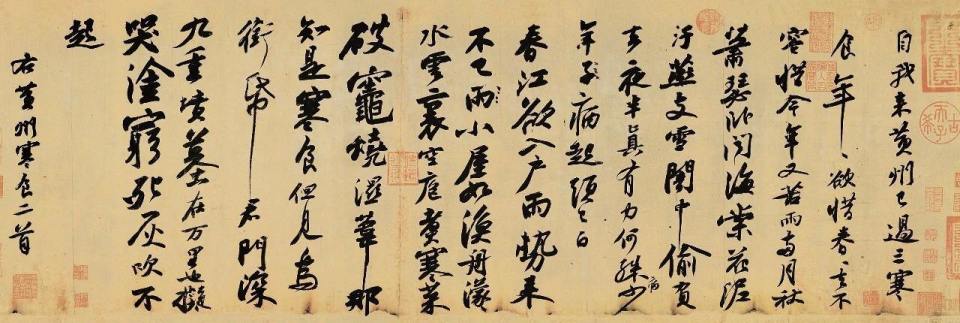 自我來黃州已過三寒
食年〻欲惜春〻去不
容惜今年又苦雨兩月秋
蕭瑟卧聞海棠花泥
汙燕支雪闇中偷負
去夜半真有力何殊少
病
年子病起頭已白
春江欲入戶雨勢來
不已雨小屋如漁舟濛〻
水雲裏空庖煮寒菜
破竈燒濕葦那
知是寒食但見烏
銜帋君門深
九重墳墓在万里也擬
哭塗窮死灰吹不
起
右黃州寒食二首
古希天子